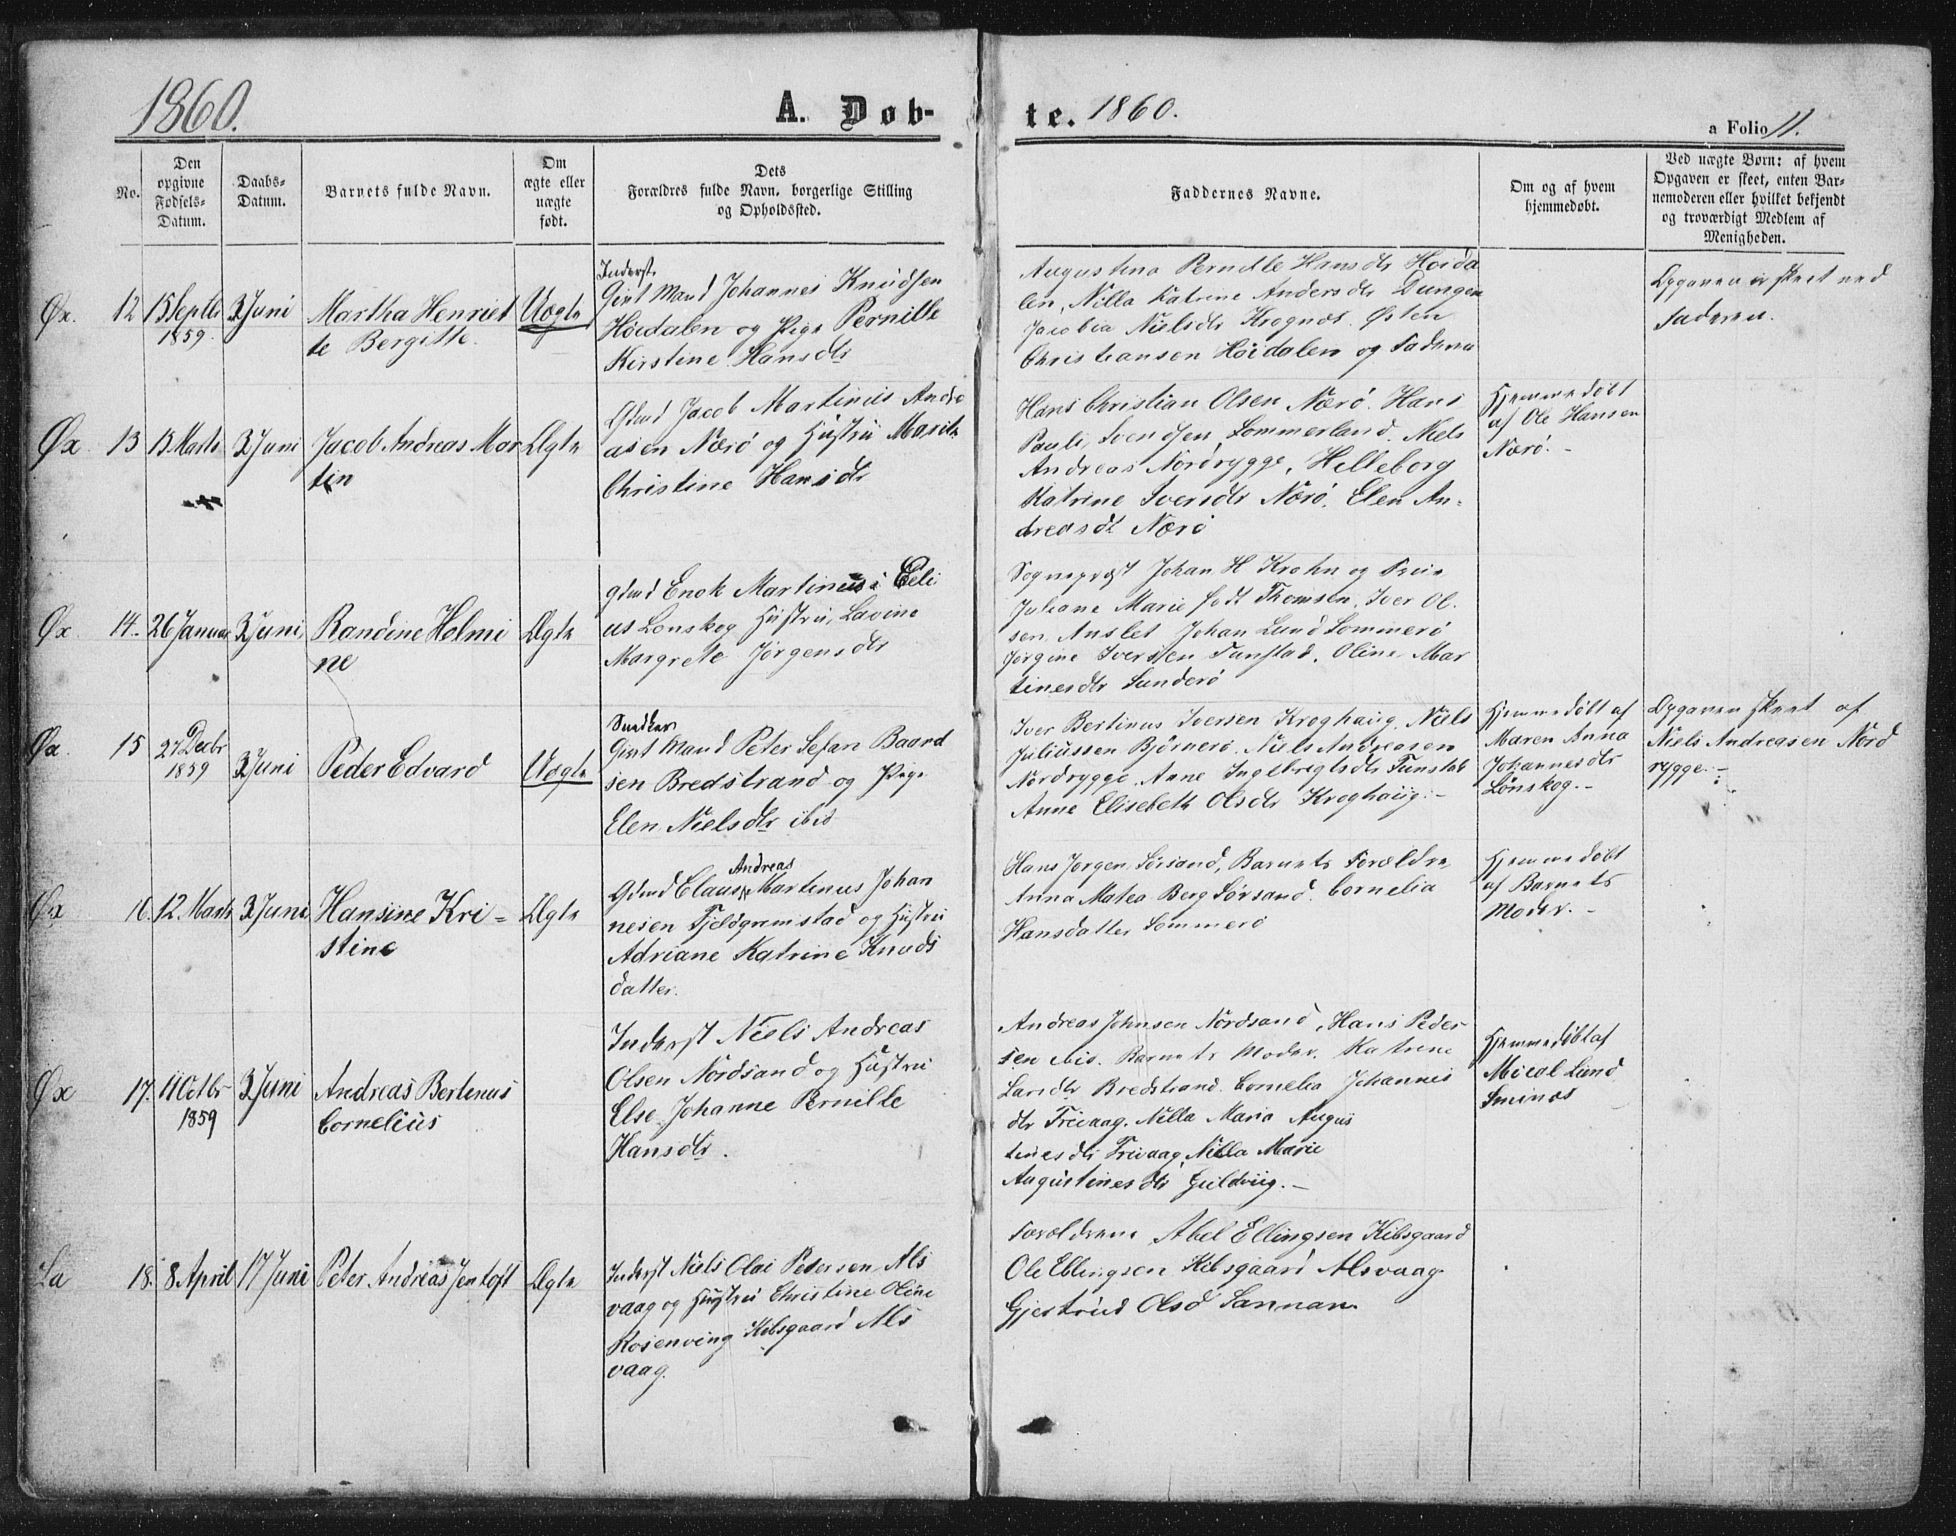 1860.
A. Døb-
te. 1860.
a Folio 11.
No.
Den
opgivne
Fødsels-
Datum.
Daabs-
Datum.
Barnets fulde Navn.
Om
ægte eller
uægte
født.
Dets
Forældres fulde Navn, borgerlige Stilling
og Opholdssted.
Faddernes Navne.
Om og af hvem
hjemmedøbt.
Ved uægte Børn: af hvem
Opgaven er skeet, enten Bar-
nemoderen eller hvilket bekjendt
og troværdigt Medlem af
Menigheden.
Øx. 12 15 Septb
1859.
3 Juni
Martha Henriet
te Bergitte.
Uægte
Inderst.
Gift Mand Johannes Knudsen
Höidalen og Pige Pernille
Kirstine Hansdtr
Augustina Pernille Hansdtr Hoida
len, Nilla Katrine Andersdtr Dungen
Jacobia Nielsdtr Krognæs. Østen
Christiansen Höidalen og Faderen
Opgaven er skeet ved
Faderen.
Øx. 13 13 Marts
3 Juni
Jacob Andreas Mar
tin
Ægte
Gdmd Jacob Martinus Andre
asen Nærö og Hustru Marith
Christine Hansdtr
Hans Christian Olsen Nærö. Hans
Pauli Svendsen Sommerland. Niels
Andreas Nordrygge, Helleborg
Katrine Iversdtr Nærö. Elen An-
dreasdt Nærö
Hjemmedöbt
af Ole Hansen
Nærö. -
Øx. 14. 26 Januar
3 Juni
Randine Helmi
ne
Ægte
gdmd Enok Martinus Eli
us Lonskog Hustru, Lavine
Margrete Jörgensdtr
Sogneprest Johan H Krohn og Frue
Juliane Marie födt Thomsen, Iver Ol-
sen Anslet Johan Lund Sommerö
Jörgine Iversen Tunstad. Oline Mar
tinesdtr Sanderö
Øx. 15 27 Decbr
1859
3 Juni
Peder Edvard
Uægte
Snedker
Gift Mand Peter Sefan Baard
sen Bredstrand og Pige
Elen Nielsdtr ibid
Iver Bertinus Iversen Kroghaug. Niels
Juliussen Björnerö. Niels Andreasen
Nordrygge. Anne Ingebrigtsdtr Tunstad
Anne Elisebeth Olsdtr Kroghaug. -
Hjemmedöbt af
Maren Anna
Johannesdtr
Lönskog. -
Opgaven skeet af
Niels Andreasen Nord
rygge. -
Øx 16. 12. Marts
3 Juni
Hansine Kri -
stine
Ægte
Andreas
Gdmd Claus Martinus Johan
nesen Fjeldgrimstad og Hustru
Adriane Katrine Knuds
datter.
Hans Jorgen Sörsand, Barnets Forældre,
Anna Matea Berg Sörsand. Cornelia
Hansdatter Sommerö
Hjemmedöbt
af Barnets
Moder. -
Øx 17. 11 Octbr
1859
3 Juni
Andreas Bertinus
Cornelius
Inderst Niels Andreas
Olsen Nordsand og Hustru
Else Johanne Pernille
Hansdtr.
Andreas Johnsen Nordsand, Hans Peder-
sen ibid. Barnets Moder. Katrine
Larsdtr Bredstrand. Cornelia Johannis
dtr Freivaag. Nilla Maria Augus
tinesdtr Freivaag, Nilla Marie
Augustinesdtr Guldviig. -
Hjemmedöbt af
Micál Lund
Sminæs
La 18. 8 April
17 Juni
Peter Andreas Jentoft
Ægte
Inderst Niels Olai Pedersen Als
vaag og Hustru Christine Oline
Rosenving Kibsgaard Als
vaag.
Forældrene Abel Ellingsen Kibsgaard
Ole Ellingsen Kibsgaard Alsvaag
Gjestrud Olsd Sannan